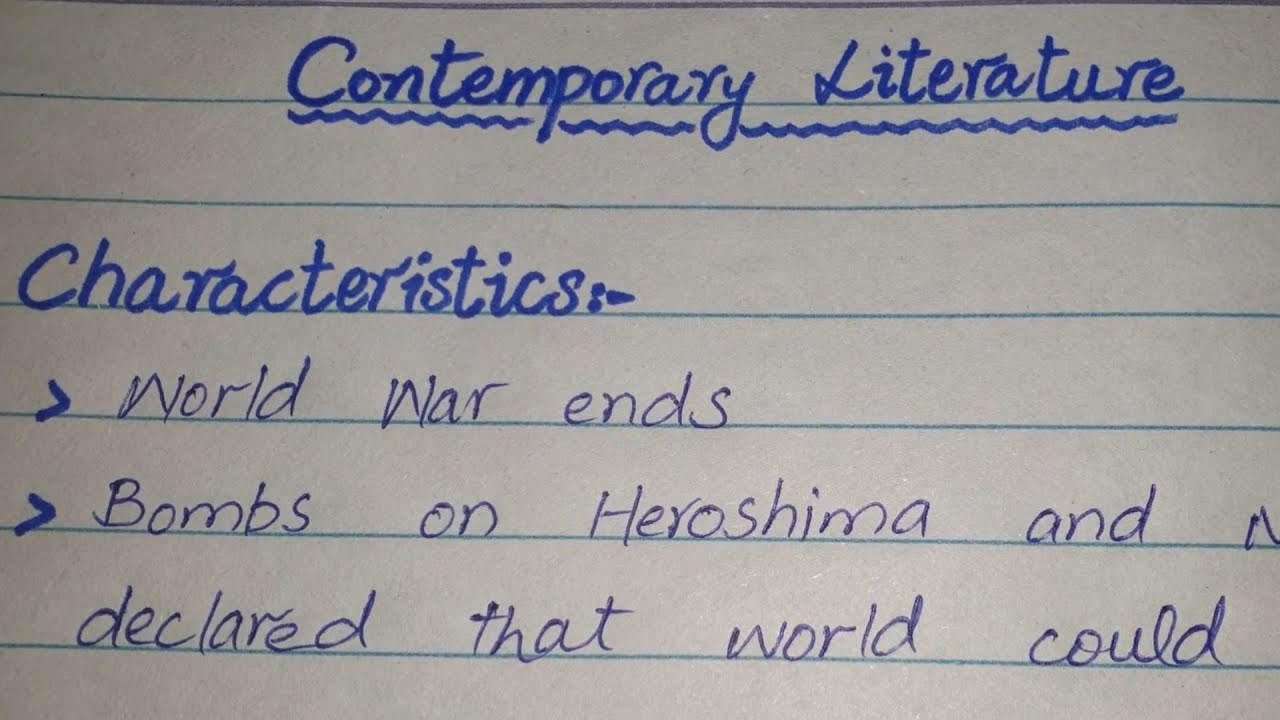 Contemporary Literature
Characteristics:-
> World War ends
> Bombs on Heroshima and
declared that world could